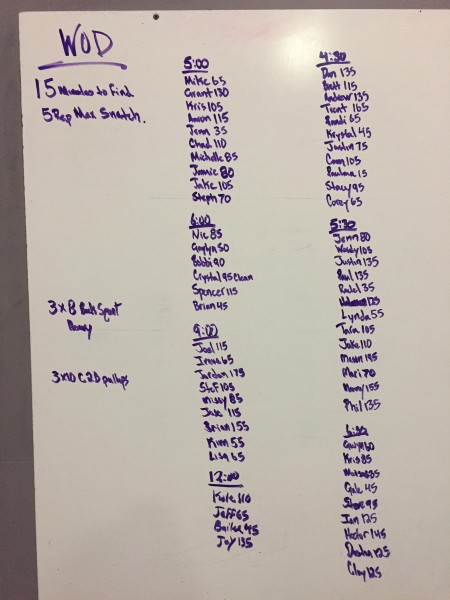 WOD
15 Minutes to find
5 Rep Max Snatch.
3x8 Back Squat
Heavy
3x10 C2B pullups
5:00
Mike 65
Grant 130
Kris 105
Aaron 115
Jenn 35
Chad 110
Michelle 85
Jamie 80
Jake 105
Steph 70
6:00
Nic 85
50
Bobbi 90
Crystal 95 Clean
Spencer 115
Brian 45
9:00
Joel 115
Irma 65
Jordan 175
Stef 105
Missy 85
Jake 115
Brian 155
Kim 55
Lisa 65
12:00
Kate 110
Jeff 65
Bailee 45
Jay 135
4:30
Dan 135
Brett 115
Andrew 135
Trent 165
Randi 65
Krystal 45
Justin 75
Cam 105
Paulina 15
Stacy 95
Corey 65
5:30
Jenn 80
Woody 105
Justin 135
Paul 135
Rachel 35
125
Lynda 55
Tara 105
Jake 110
Mason 195
Mari 70
Manny 155
Phil 135
6:30
60
Kris 85
85
Gale 45
Steve 95
Ian 125
Hector 145
125
Clay 125